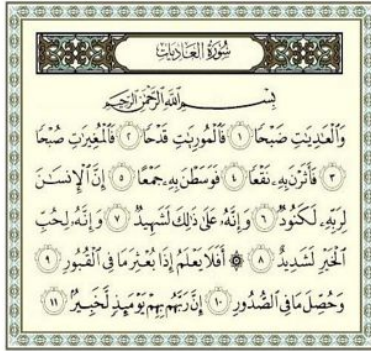 سُورَةُ العَادِيَاتِ
بِسْمِ اللَّهِ الرَّحْمَٰنِ الرَّحِيمِ
وَالْعَٰدِيَٰتِ ضَبْحًا ١ فَالْمُورِيَٰتِ قَدْحًا ٢ فَالْمُغِيرَٰتِ صُبْحًا
٣ فَأَثَرْنَ بِهِۦ نَقْعًا ٤ فَوَسَطْنَ بِهِۦ جَمْعًا ٥ إِنَّ الْإِنسَٰنَ
لِرَبِّهِۦ لَكَنُودٌ ٦ وَإِنَّهُۥ عَلَىٰ ذَٰلِكَ لَشَهِيدٌ ٧ وَإِنَّهُۥ لِحُبِّ
الْخَيْرِ لَشَدِيدٌ ٨ ۞ أَفَلَا يَعْلَمُ إِذَا بُعْثِرَ مَا فِي الْقُبُورِ ٩
وَحُصِّلَ مَا فِي الصُّدُورِ ١٠ إِنَّ رَبَّهُم بِهِمْ يَوْمَئِذٍ لَّخَبِيرٌ ١١